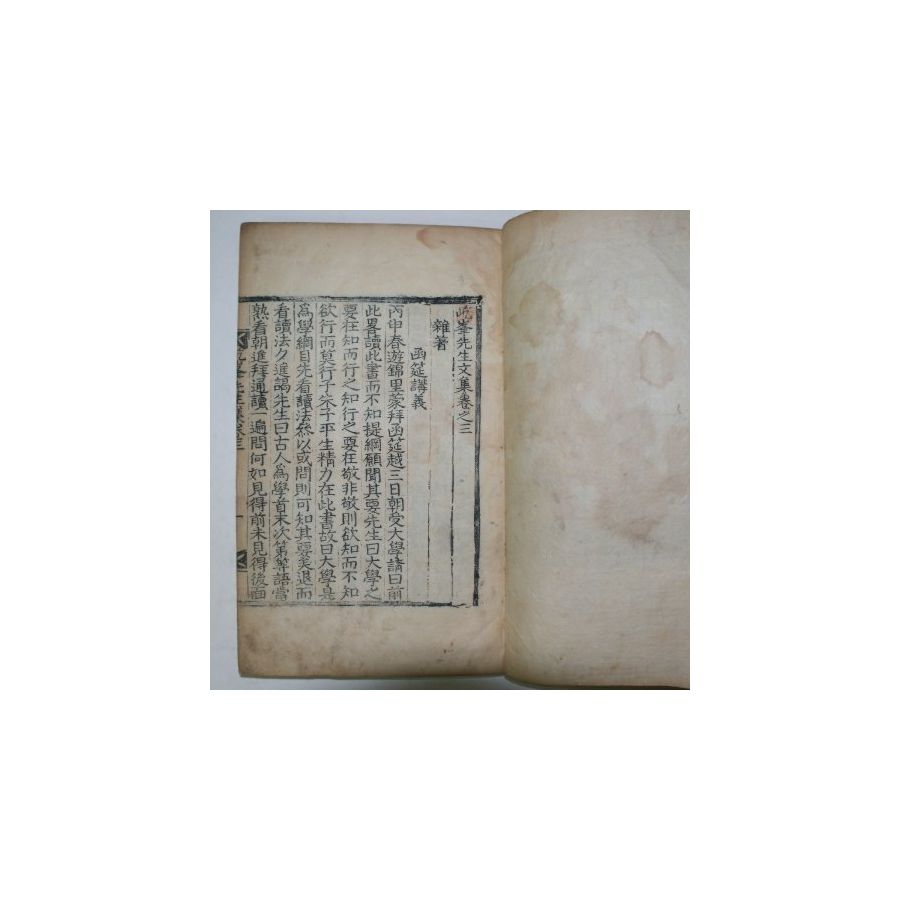 峯先生文集卷之三
雜著
函筵講義
丙申春遊錦里蒙拜函筵越三日朝受大學請曰前
此畧讀此書而不知提綱願聞其要先生曰大學之
要在知而行之知行之要在敬非敬則欲知而不知
欲行而莫行子朱子平生精力在此書故曰大學是
為學綱目先看讀法參以或問則可知其要矣退而
看讀法夕進謁先生曰古人為學首末次第等語當
熟看朝進拜通讀一遍問何如見得前未見得後面